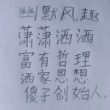 幽默风趣
潇潇洒洒
富有哲理
洒家思想
傻子创始人